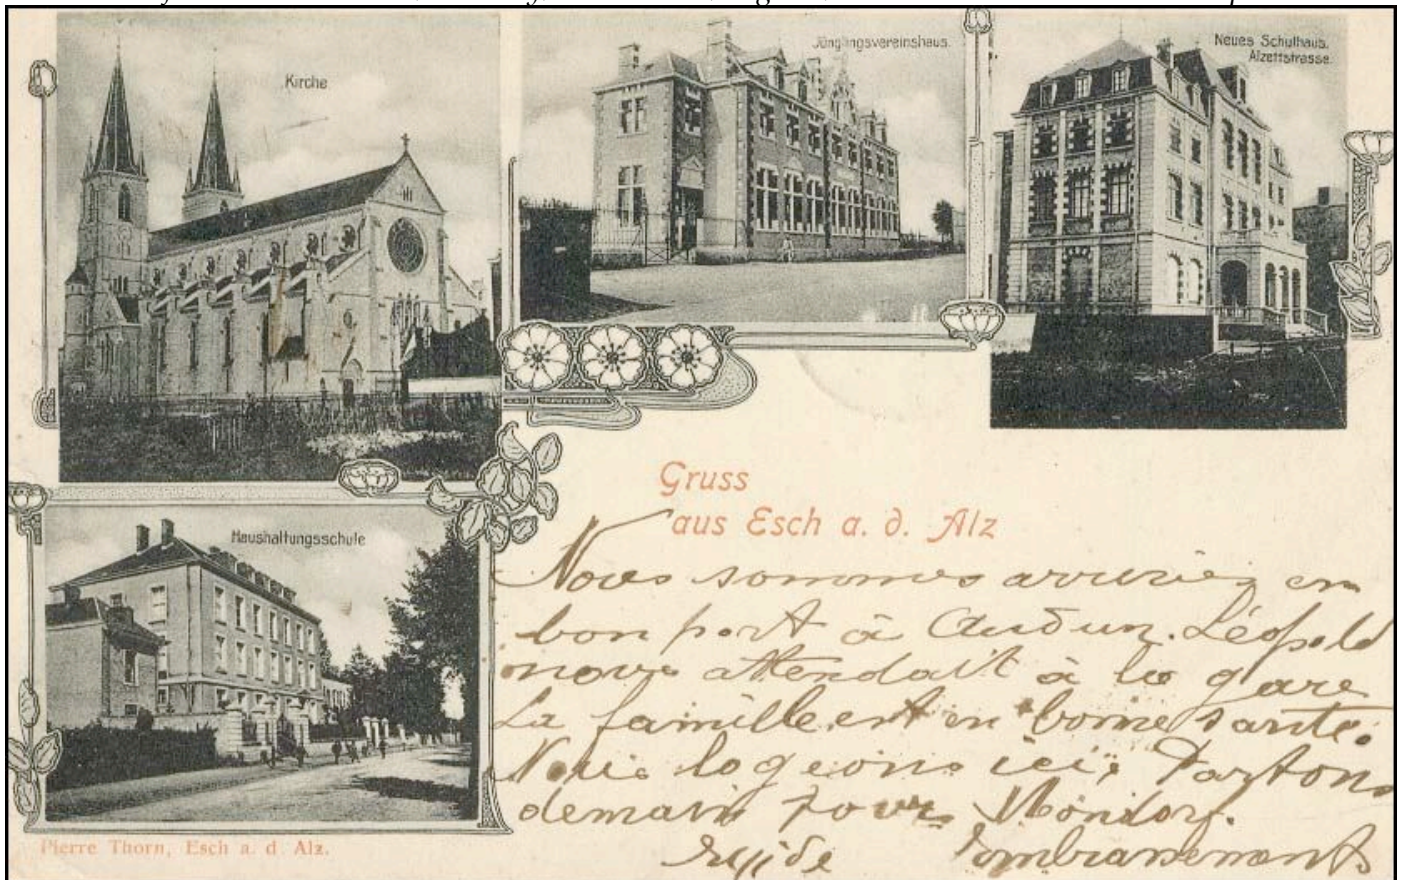 Kirche
Jünglingsvereinshaus.
Neues Schulhaus.
Alzettstrasse.
Haushaltungsschule
Gruss
aus Esch a. d. Alz
Nous sommes arrivés en
bon port à Audun. Léopold
nous attendait à la gare
La famille est en bonne santé.
Nous logeons ici, Partons
demain pour Mondorf.
embrassements
Pierre Thorn, Esch a. d. Alz.